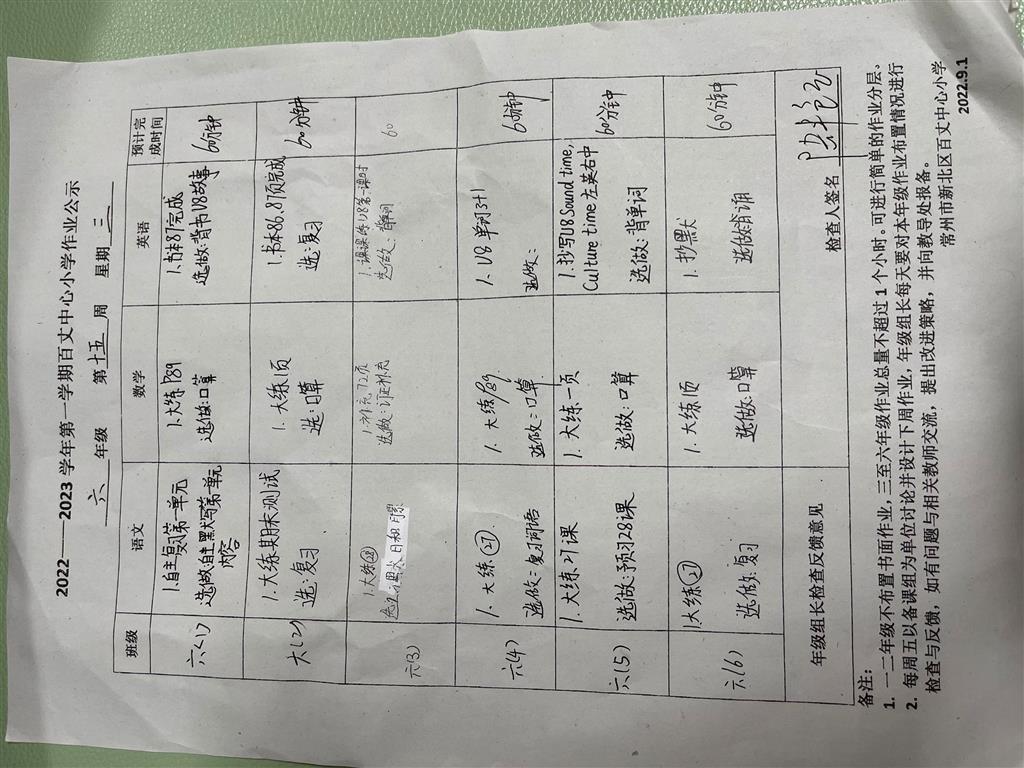 2022——2023学年第一学期百丈中心小学作业公示
六 年级 第 十五 周 星期 三
班级 语文 数学 英语 预计完成时间
六(1) 1.自主复习第一单元 1.大练P89 1.书本87完成 60分钟
选做:自主默写第一单元内容 选做:口算 选做:背书U8故事
六(2) 1.大练期末测试 1.大练一页 1.书本86.87页完成 60分钟
选:复习 选:口算 选:复习
六(3) 1.大练㉘ 1.补充72页 1.课课练U8第二课时 60
日和月
六(4) 1.大练㉗ 1.大练P89 1.U8单词3+1 60分钟
选做:复习词语 选做:口算 选做:
六(5) 1.大练27课 1.大练一页 1.抄写U8 Sound time, Culture time左英右中 60分钟
选做:预习28课 选做:口算 选做:背单词
六(6) 1.大练㉗ 1.大练1页 1.抄默 60分钟
选做:复习 选做:口算 选做:背单词
年级组长检查反馈意见 检查人签名
备注:
1. 一二年级不布置书面作业,三至六年级作业总量不超过1个小时。可进行简单的作业分层、
2. 每周五以备课组为单位讨论并设计下周作业,年级组长每天要对本年级作业布置情况进行
检查与反馈,如有问题与相关教师交流,提出改进策略,并向教导处报备。
常州市新北区百丈中心小学
2022.9.1